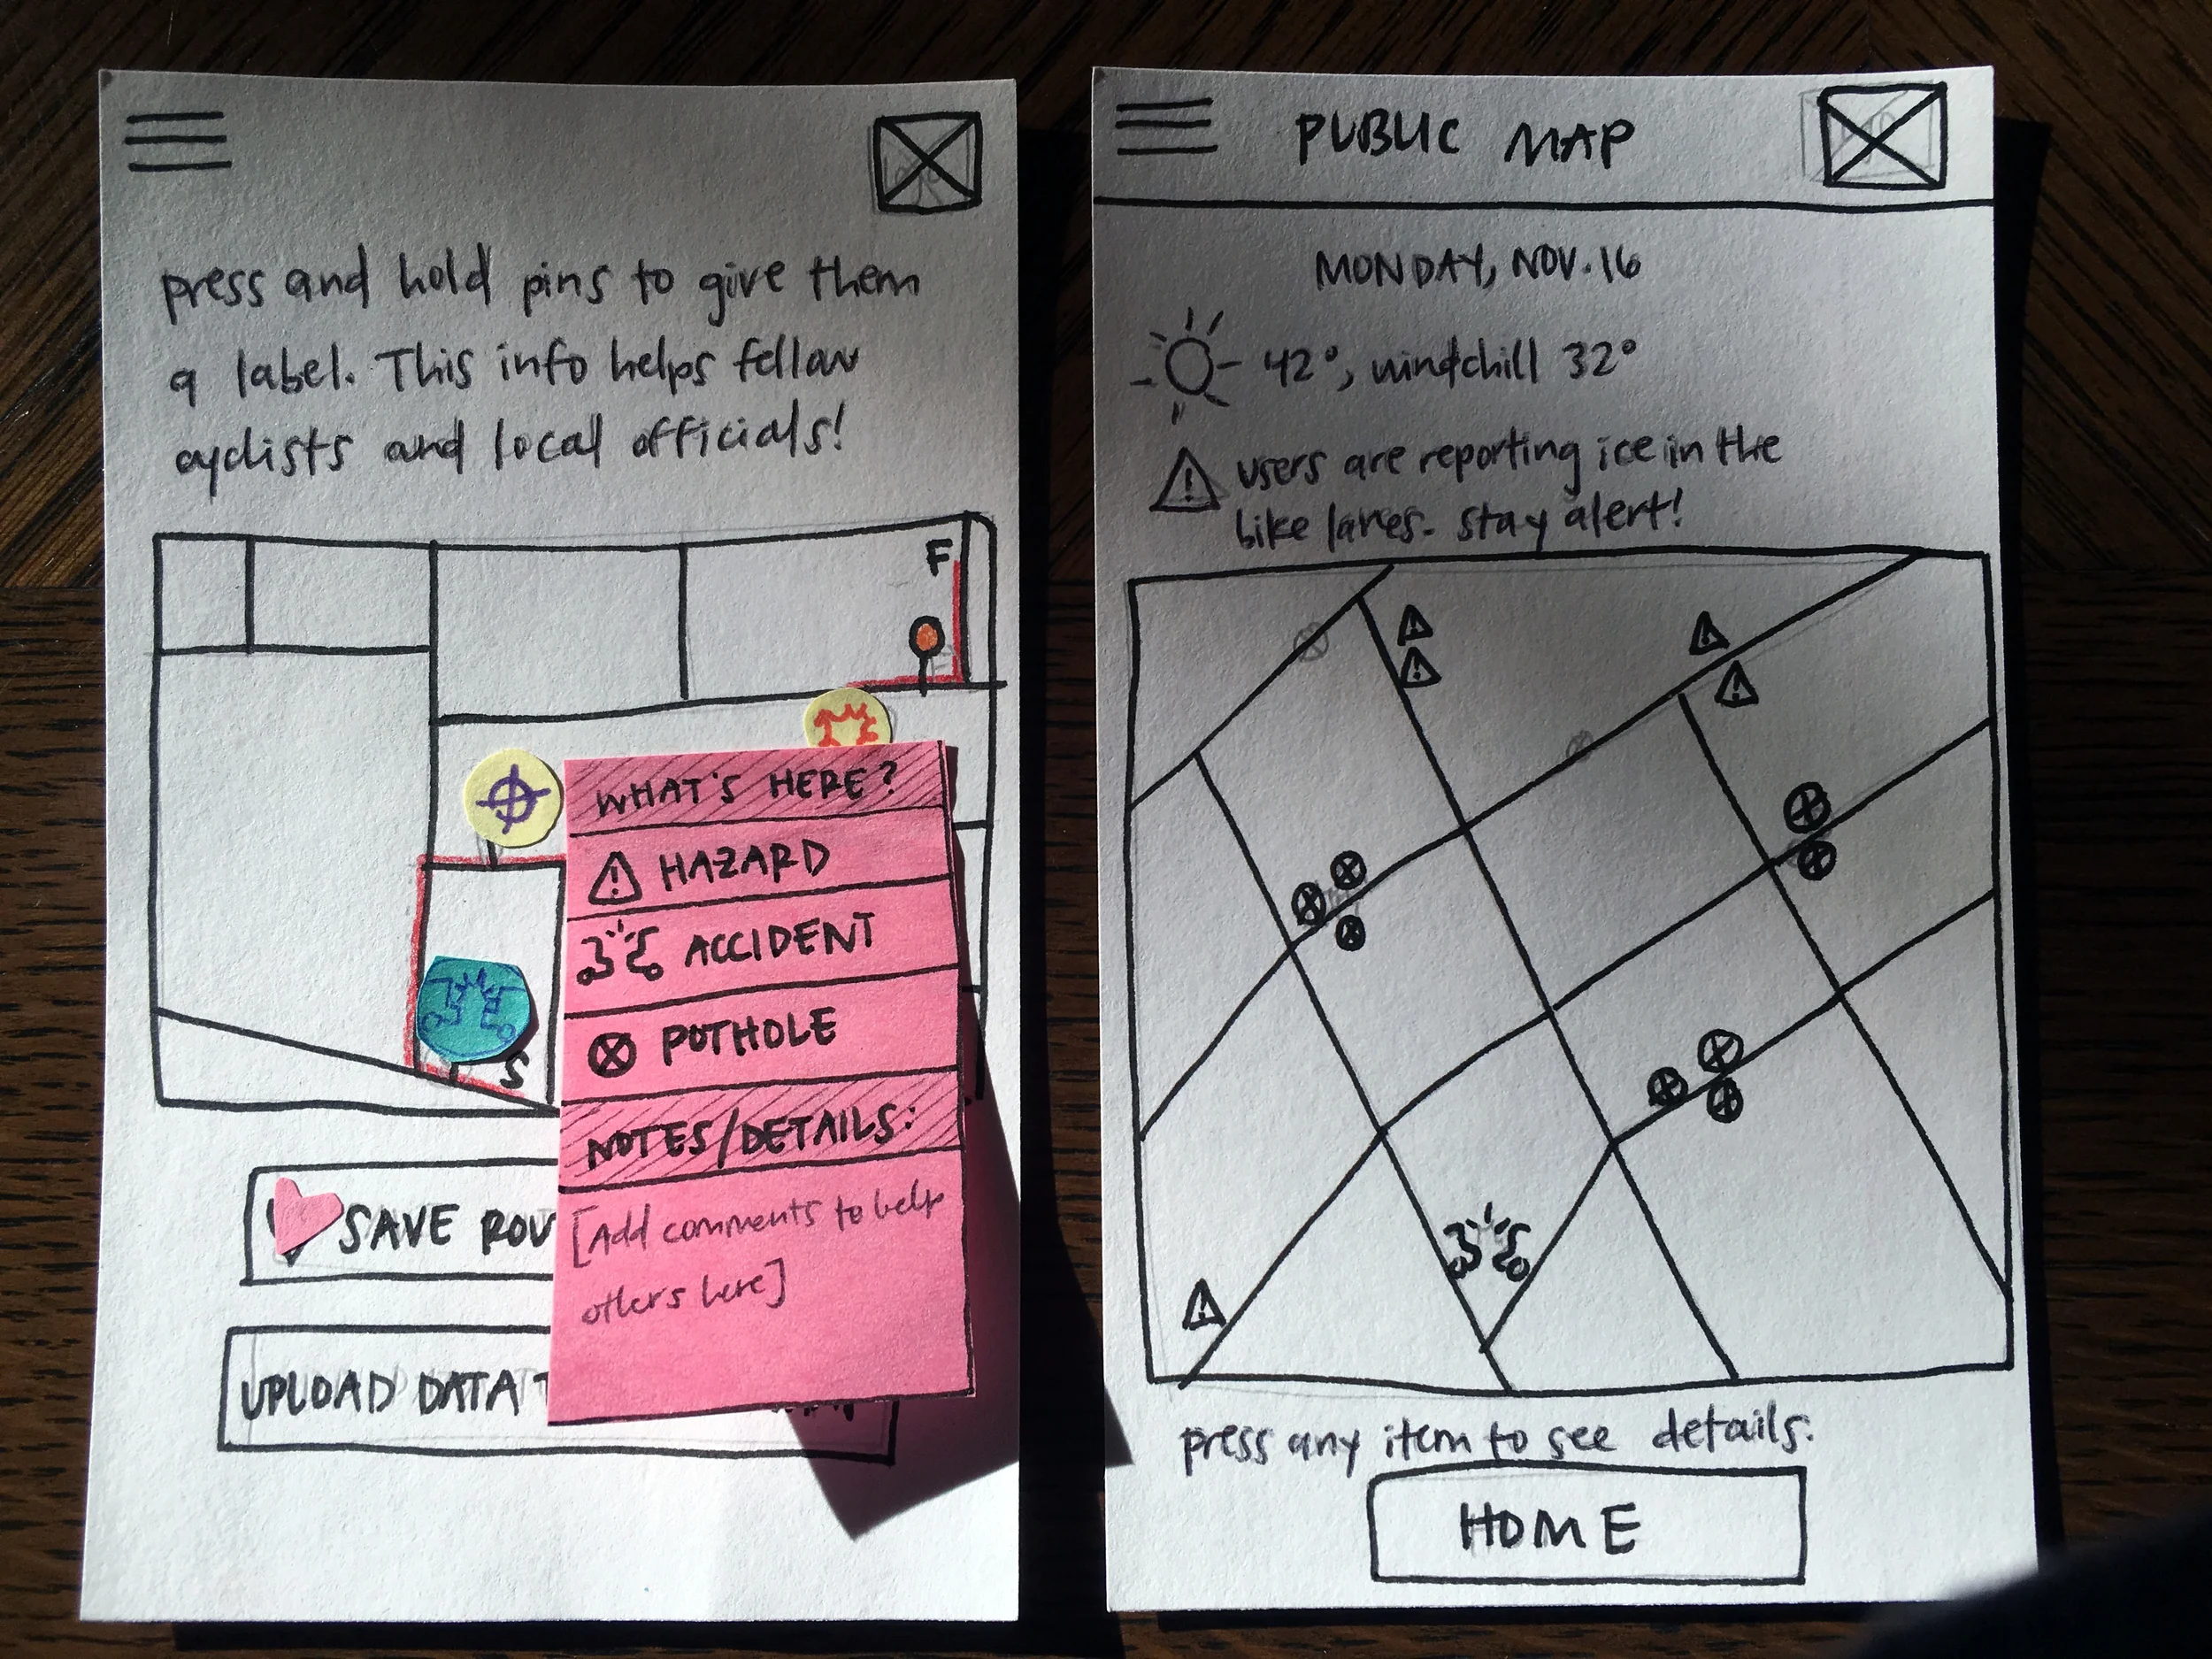 press and hold pins to give them
a label. This info helps fellow
cyclists and local officials!
F
S
WHAT'S HERE?
HAZARD
ACCIDENT
POTHOLE
NOTES/DETAILS:
[Add comments to help
others here]
SAVE ROU
UPLOAD DATA T
PUBLIC MAP
MONDAY, NOV. 16
42°, windchill 32°
users are reporting ice in the
bike lanes. stay alert!
press any item to see details.
HOME